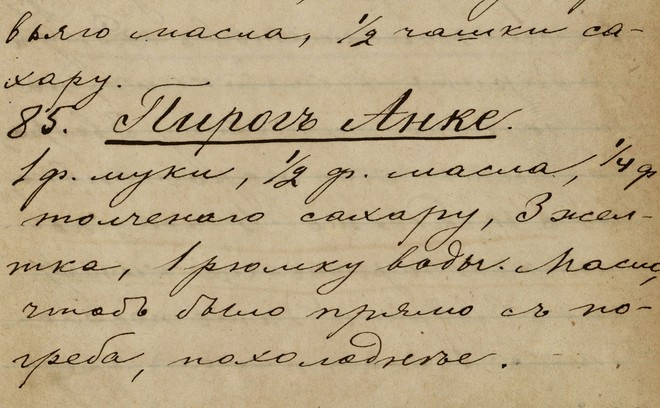 вьяго масла, 1/2 чашки са-
хару.
85. Пирогъ Анке.
1 ф. муки, 1/2 ф. масла, 1/4 ф
толченаго сахару, 3 жел-
тка, 1 рюмку воды. Масло,
чтобъ было прямо съ по-
греба, похолоднѣе.